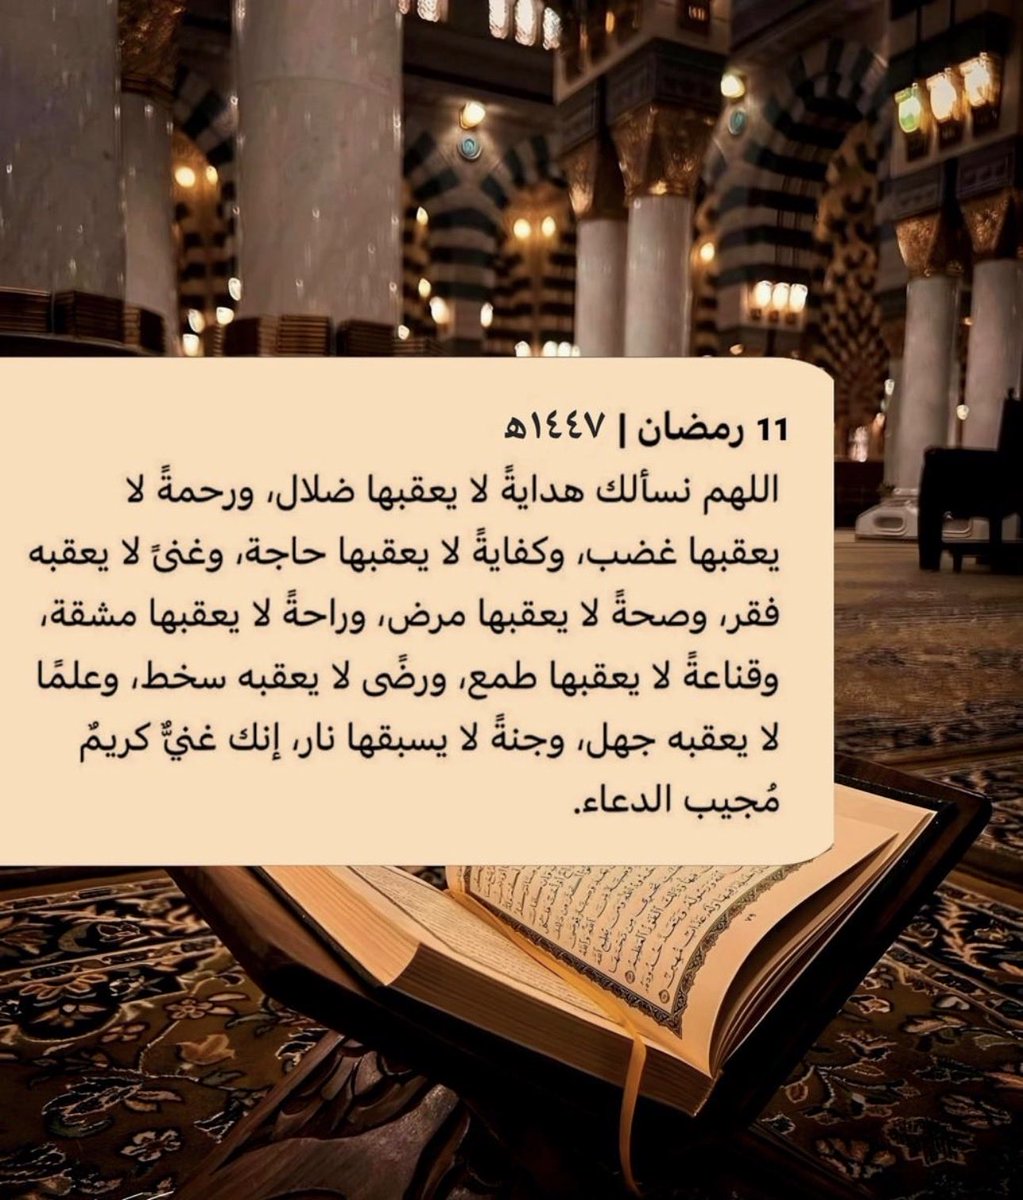 11 رمضان | ١٤٤٧ه
اللهم نسألك هدايةً لا يعقبها ضلال، ورحمةً لا
يعقبها غضب، وكفايةً لا يعقبها حاجة، وغنىً لا يعقبه
فقر، وصحةً لا يعقبها مرض، وراحةً لا يعقبها مشقة،
وقناعةً لا يعقبها طمع، ورضًى لا يعقبه سخط، وعلمًا
لا يعقبه جهل، وجنةً لا يسبقها نار، إنك غنيٌّ كريمٌ
مُجيب الدعاء.